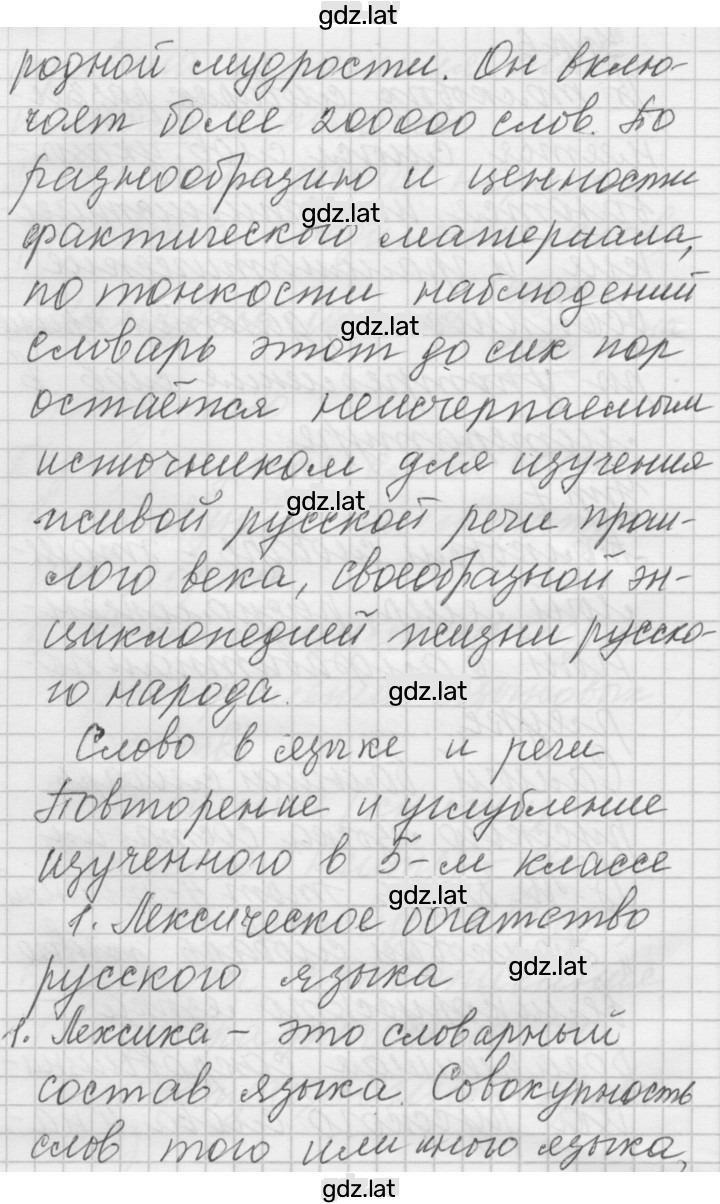 gdz.lat
родной мудрости. Он вклю-
чает более 200000 слов. По
разнообразию и ценности
gdz.lat
фактического материала,
по тонкости наблюдений
gdz.lat
словарь этот до сих пор
остаётся неисчерпаемым
источником для изучения
gdz.lat
живой русской речи прош-
лого века, своеобразной эн-
циклопедией жизни русско-
го народа.
gdz.lat
Слово в языке и речи
Повторение и углубление
изученного в 5-м классе
gdz.lat
1. Лексическое богатство
русского языка
gdz.lat
1. Лексика – это словарный
состав языка. Совокупность
слов того или иного языка,
gdz.lat